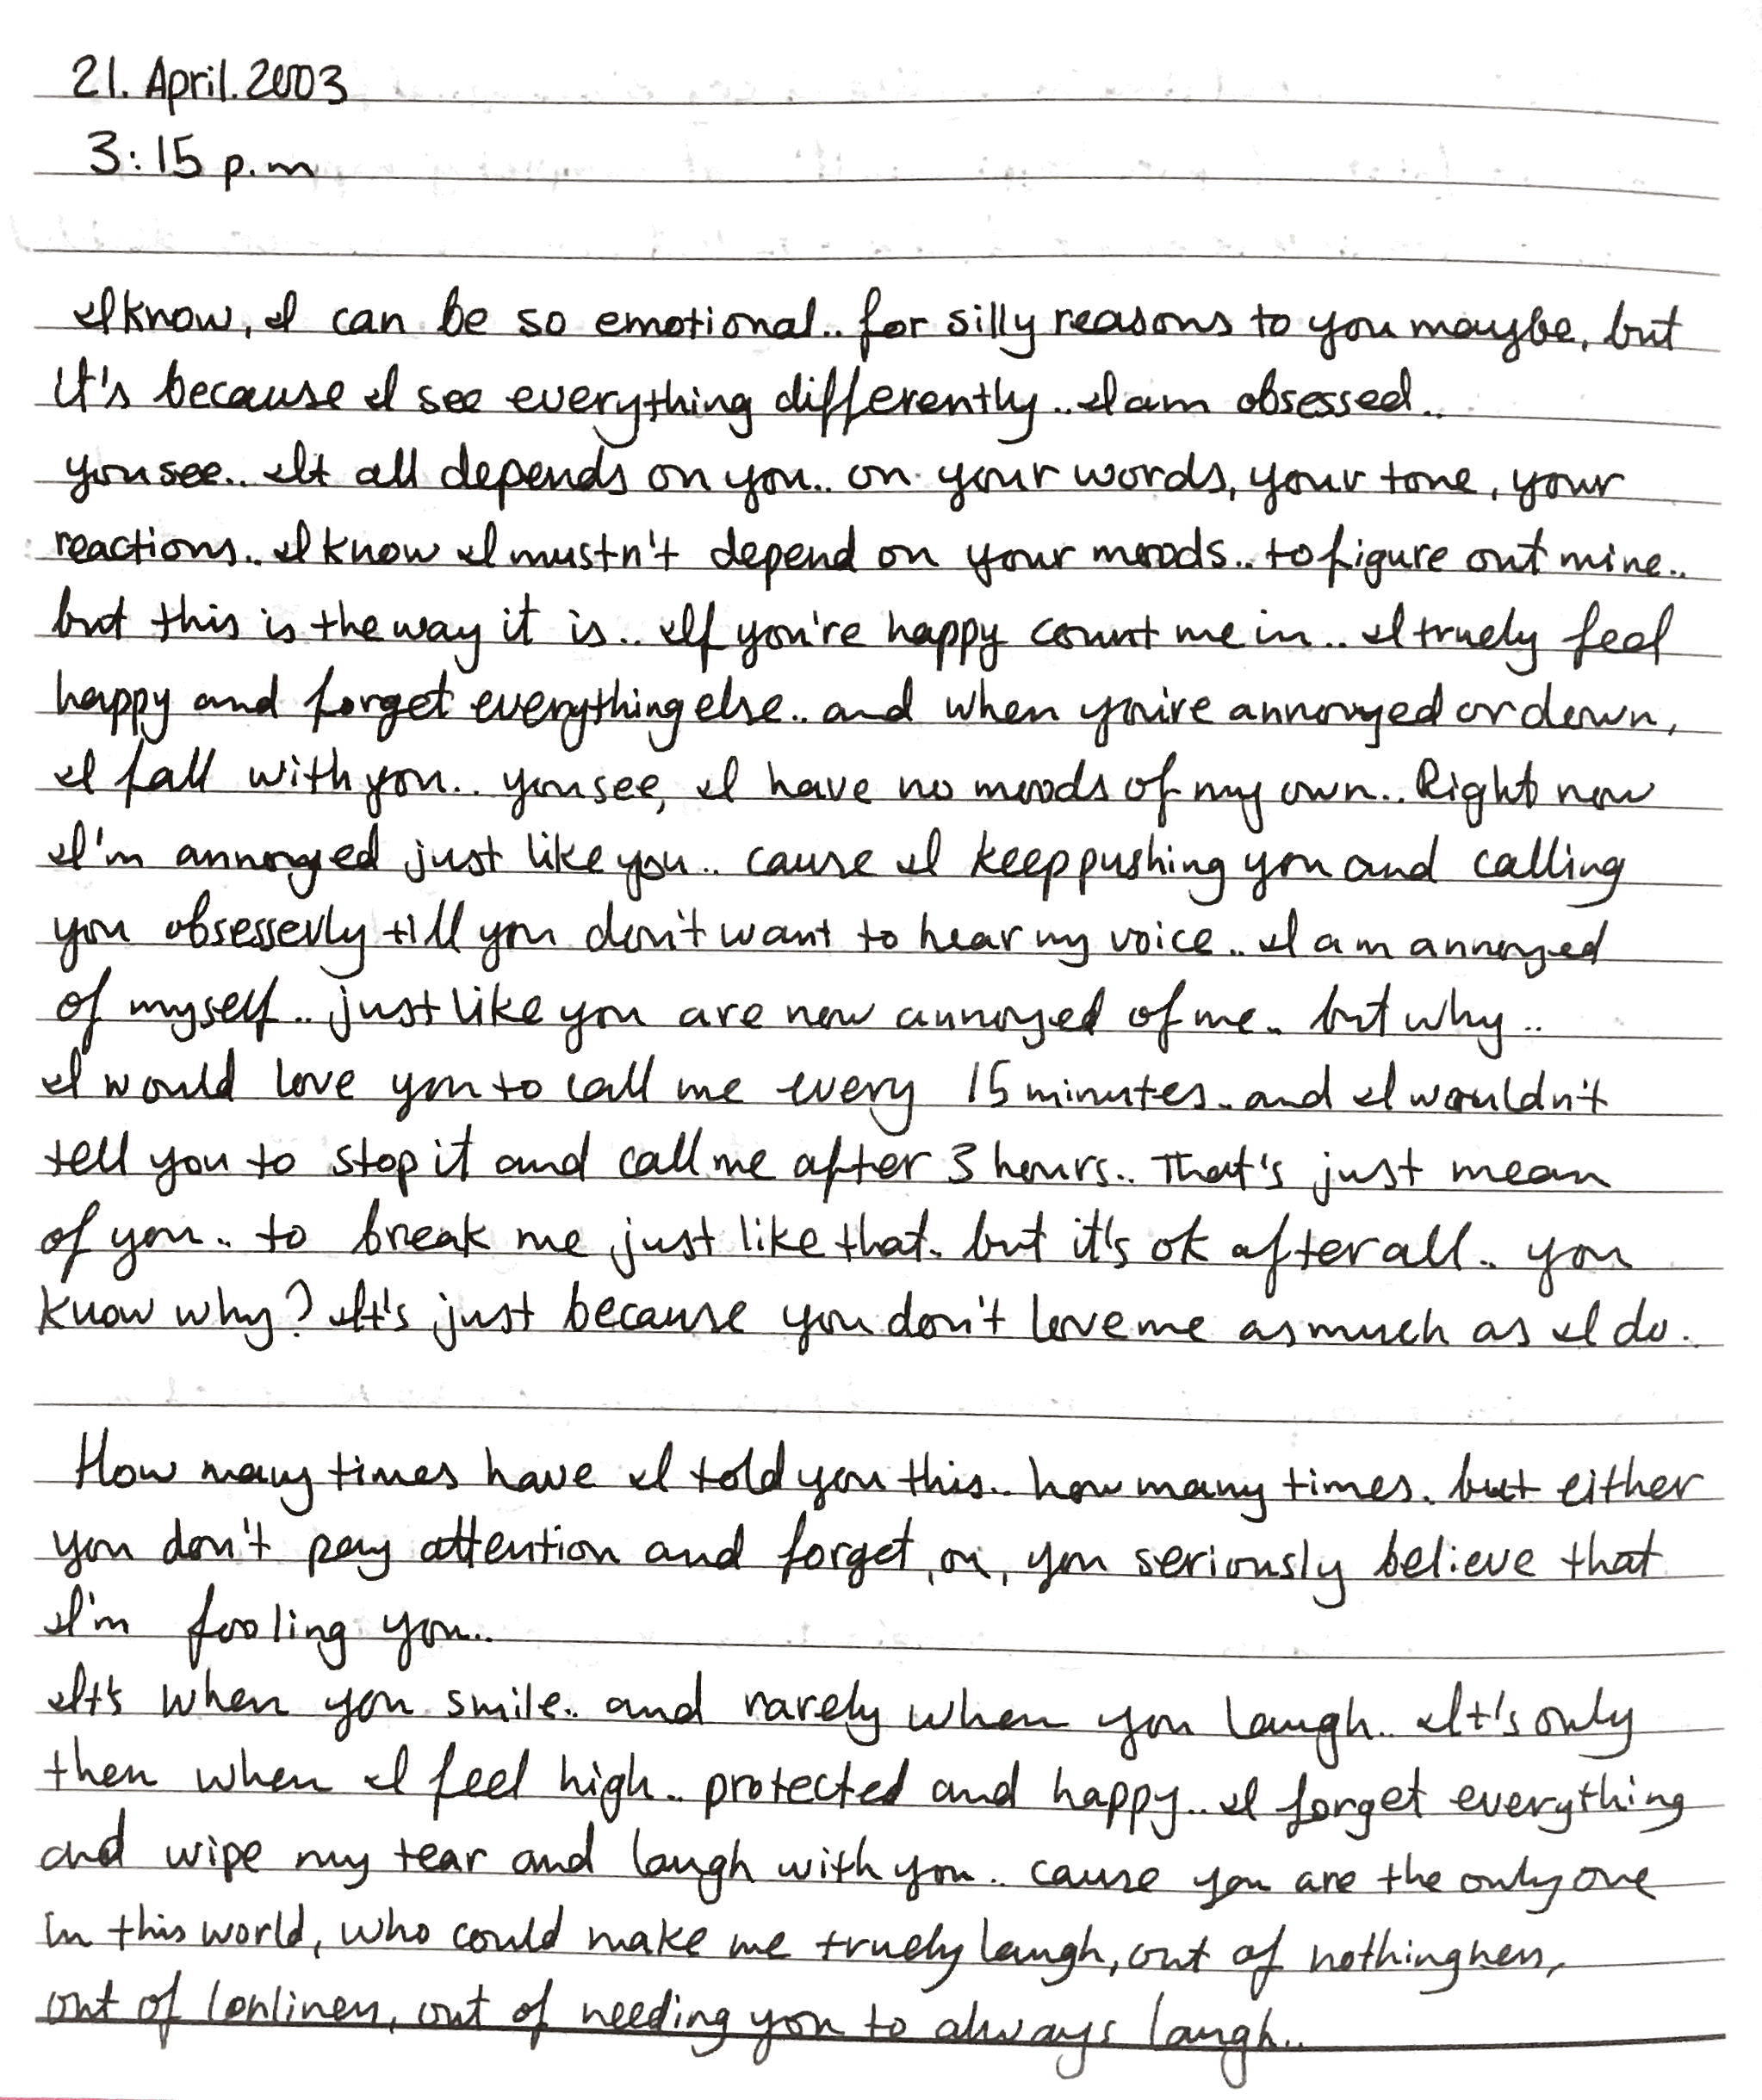 21. April. 2003
3:15 p.m
I know, I can be so emotional.. for silly reasons to you maybe, but
it's because I see everything differently.. I am obsessed..
you see.. It all depends on you.. on your words, your tone, your
reactions.. I know I mustn't depend on your moods.. to figure out mine..
but this is the way it is.. If you're happy count me in.. I truely feel
happy and forget everything else.. and when you're annoyed or down,
I fall with you.. you see, I have no moods of my own.. Right now
I'm annoyed just like you.. cause I keep pushing you and calling
you obsesserly till you don't want to hear my voice.. I am annoyed
of myself.. just like you are now annoyed of me.. but why..
I would love you to call me every 15 minutes.. and I wouldn't
tell you to stop it and call me after 3 hours.. That's just mean
of you.. to break me just like that. but it's ok after all.. you
know why? It's just because you don't love me as much as I do.
How many times have I told you this.. how many times. but either
you don't pay attention and forget, or, you seriously believe that
I'm fooling you..
It's when you smile.. and rarely when you laugh.. It's only
then when I feel high.. protected and happy.. I forget everything
and wipe my tear and laugh with you.. cause you are the only one
in this world, who could make me truely laugh, out of nothingness,
out of lonliness, out of needing you to always laugh..